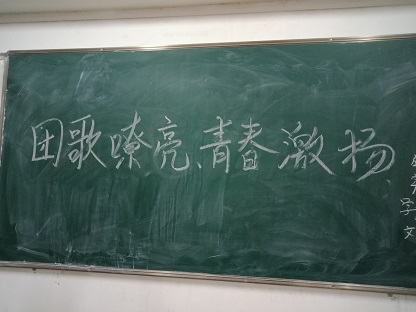 团歌嘹亮、青春激扬